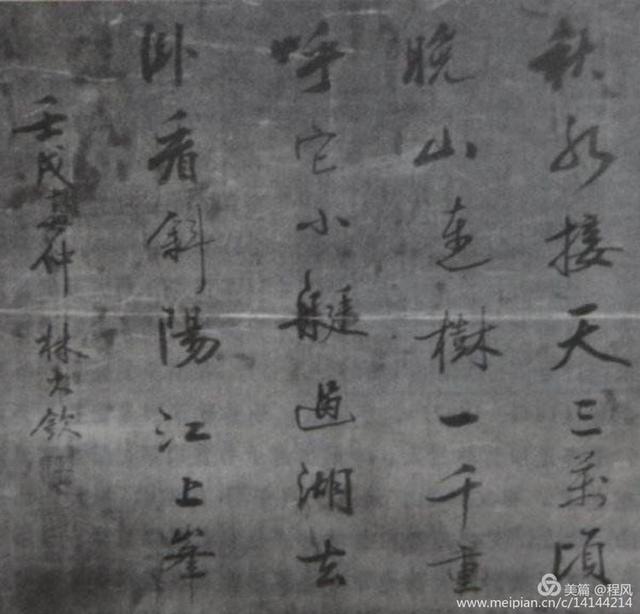 秋水接天三萬頃
晚山連樹一千重
呼它小艇過湖去
卧看斜陽江上峯
壬戌 仲 林大欽
美篇 @程风
www.meipian.cn/c/14144214